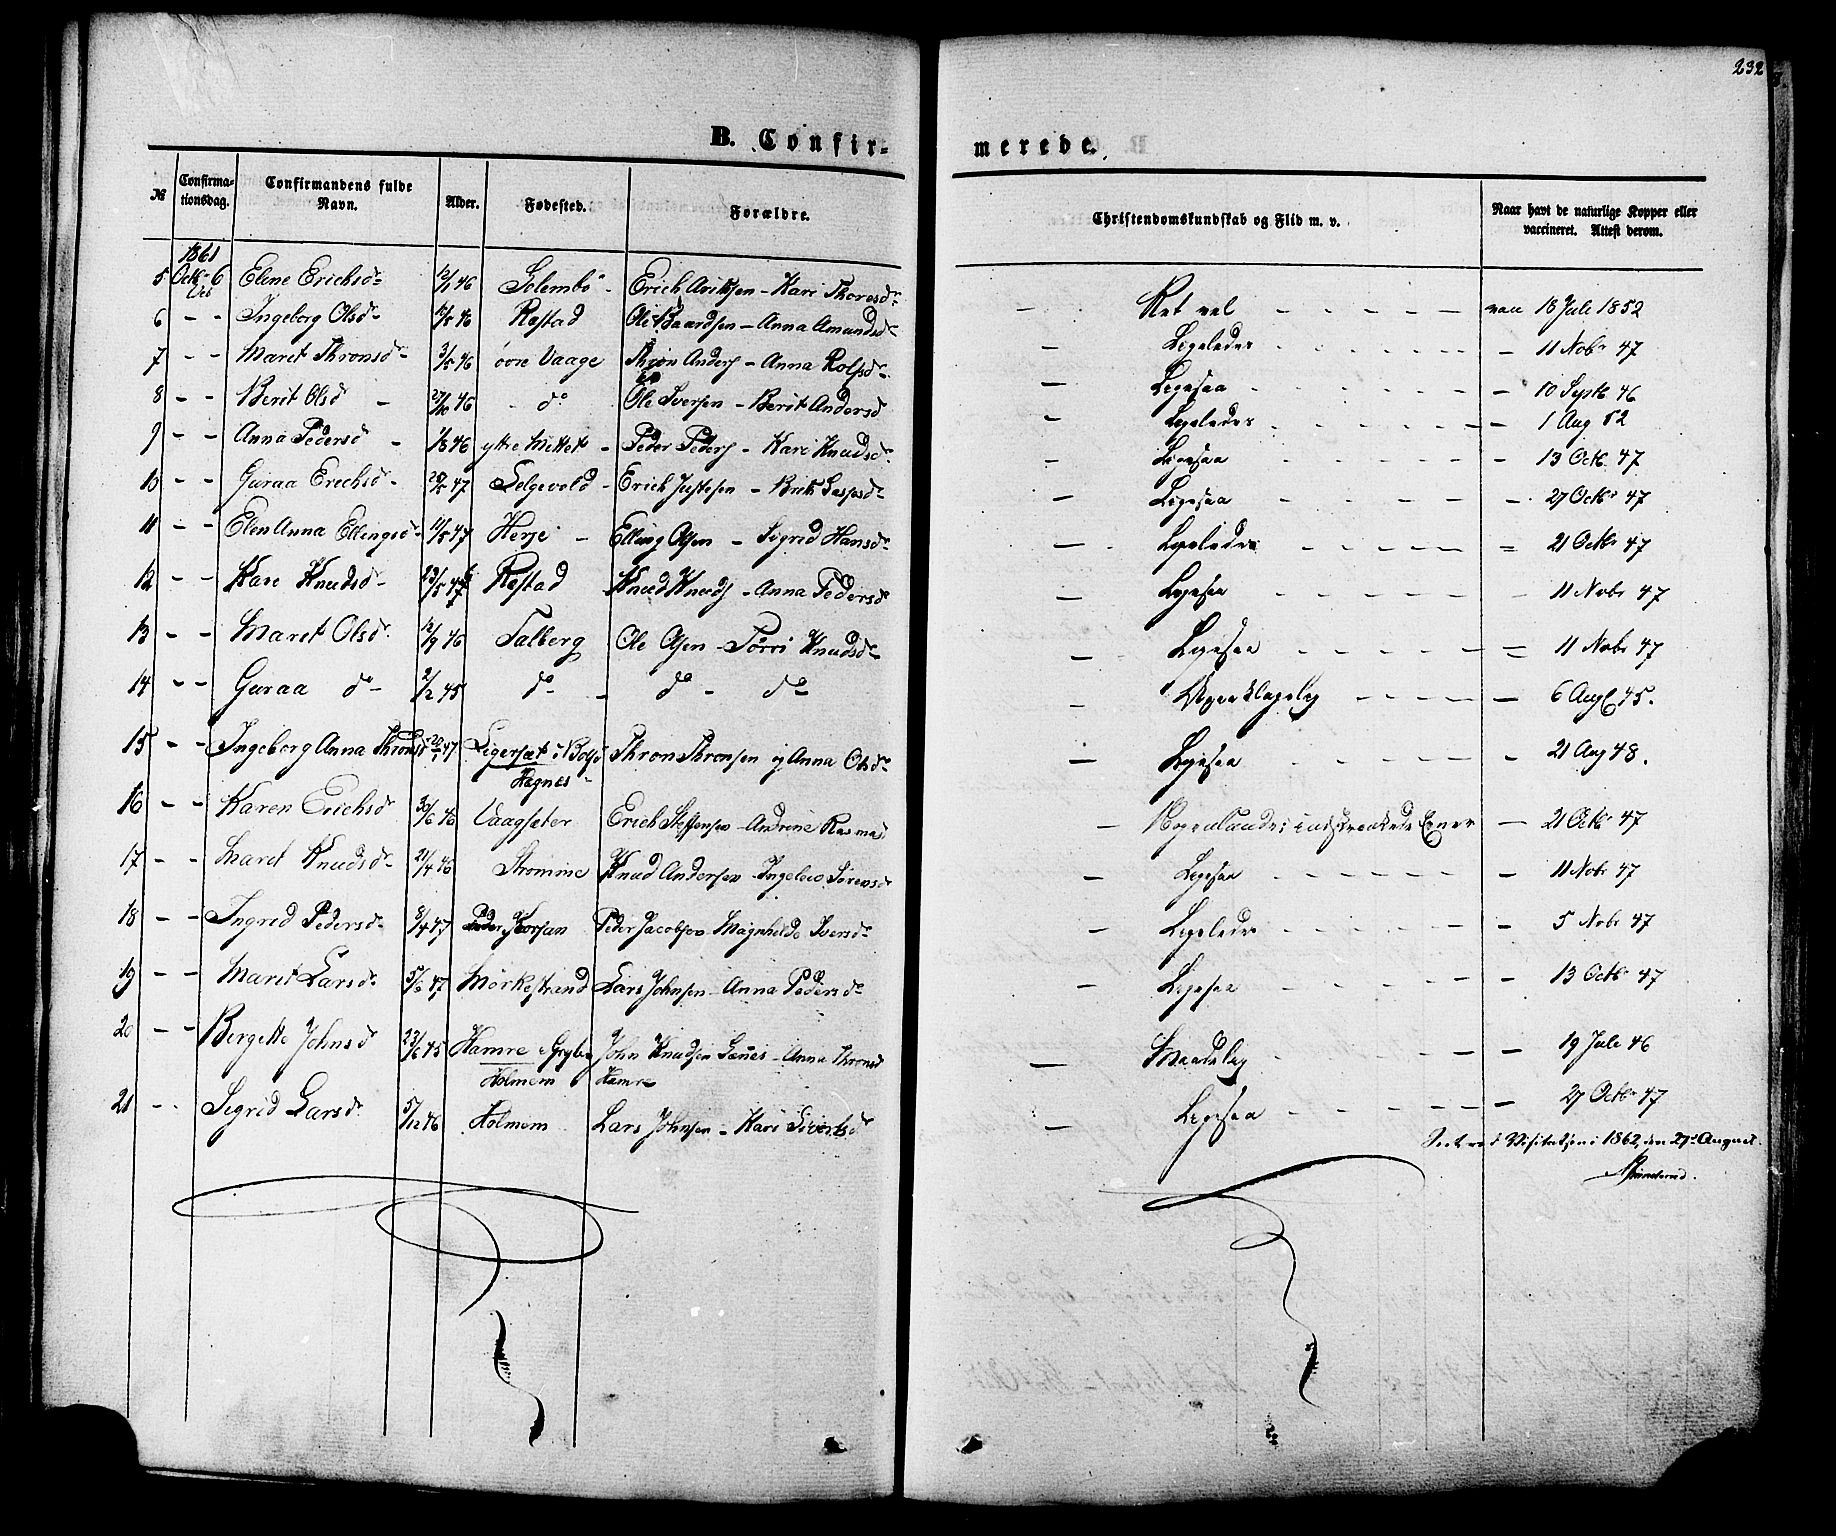 232
B. Confir-
merede.
№ Confirma-tionsdag. Confirmandens fulde Navn. Alder. Fødested. Forældre. Christendomskundskab og Flid m. v. Naar havt de naturlige Kopper eller vaccineret. Attest derom.
1861
5 Octb 6 Elene Erichsdr 12/1 46 Solembö - Erich - Kari Thoresdr - Ret vel - - - - vacc 18 Juli 1852
6 - - Ingeborg Olsdr 46 Røstad Ole Baardsen - Anna Amundsdr - Ligeledes - - - - - 11 Nobr 47
7 - - Maret Thronsdr 3/5 46 övre Vaage Thron Anders - Anna Rolfsdr - Ligesaa - - - - - 10 Septb 46
8 - - Berit Olsd - 27/10 46 do Ole Iversen - Berit Andersd - Ligeledes - - - - - 1 Aug 52
9 - - Anna Pedersd - 1/8 46 yttre Mittet - Peder Peders - Kari Knudsdr - Ligesaa - - - - - 13 Octb. 47
10 - - Guraa Erichsdr - 47 Solgevold - Erich Justesen - Brit - Ligesaa - - - - - 27 Octbr 47
11 - - Elen Anna Ellingsdr 11/5 47 Herje - Elling Olsen - Sigrid Hansdr - Ligeledes - - - - 21 Octbr 47
12 - - Kari Knudsdr - 23/5 47 Røstad Knud Knuds - Anna Pedersdr - Ligesaa - - - - - 11 Nobr 47
13 - - Maret Olsdr. 12/9 46 Talberg Ole Olsen - Törri Knudsdr - Ligesaa - - - - 11 Nobr 47
14 - - Guraa do - 2/12 45 do - do - do - - - - - - 6 Aug 45.
15 - - Ingeborg Anna Thronsd 47 i Bolsö Thron Thronsen og Anna Olsdr - Ligesaa - - - - - 21 Aug 48.
Hagnes
16 - - Karen Erichsdr 30/6 46 Vaagsæter Erich Steffensen - Andrine Rasmusd - indskrænkede Evner - 21 Octbr 47
17 - - Maret Knudsdr - 21/4 46 Strømme Knud Andersen - Ingeleiv Sörensdr - Ligesaa - - - - - 11 Nobr 47
18 - - Ingrid Pedersdr 8/4 47 Peder Jacobsen - Magnhilde Iversdr - Ligeledes - - - - - 5 Nobr 47
19 - - Marit Larsdr 5/6 47 Mörkestrand Lars Johnsen - Anna Pedersdr - Ligesaa - - - - - 13 Octbr 47
20 - - Bergette Johnsd 23/6 45 Hamre i Gryten John Knudsen - Anna Thronsd - Maadelig - - - - 19 Juli 46
Holmem Hamre
21 - - Sigrid Larsdr. 5/12 46 Holmem Lars Johnsen - Kari Sivertsdr - Ligesaa - - - - - 27 Octbr 47
Seet ved Visitatsen i 1862, den 27de August.